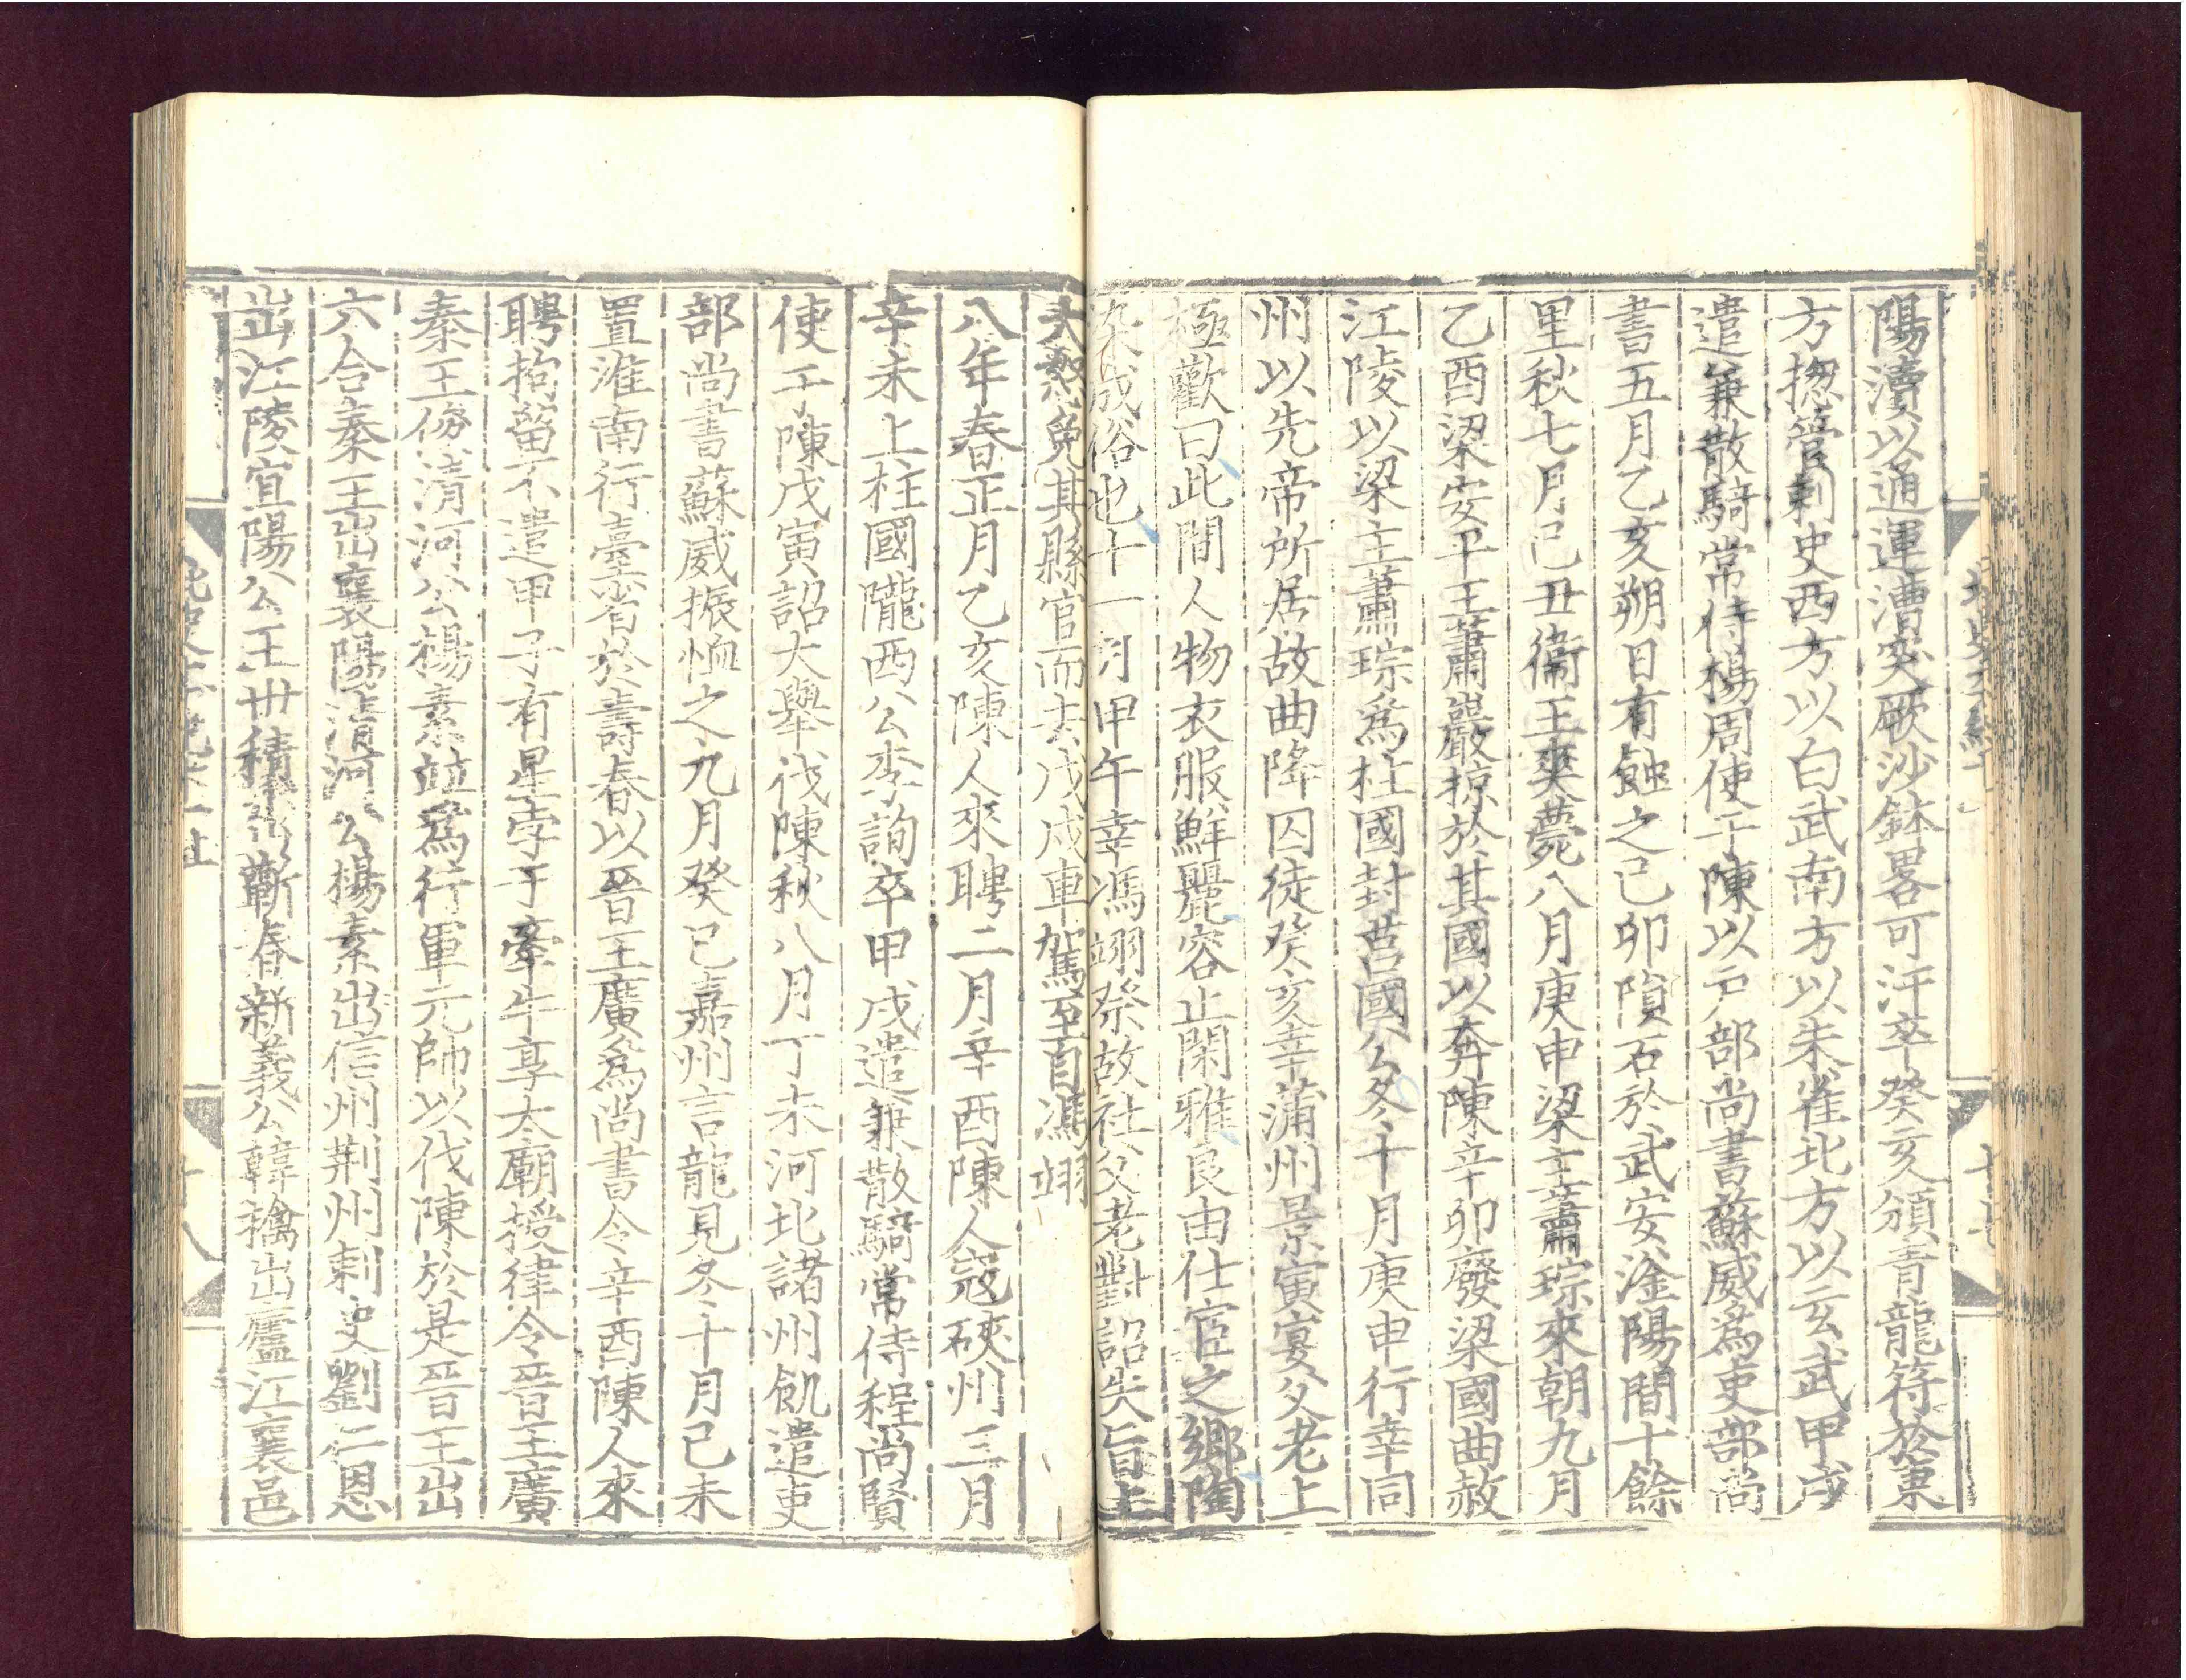 陽瀆以通運漕突厥沙鉢畧可汗卒癸亥頒青龍符於東
方揔管刺史西方以白武南方以朱雀北方以玄武甲戌
遣兼散騎常侍楊周使于陳以戸部尚書蘇威爲吏部尚
書五月乙亥朔日有蝕之己卯隕石於武安滏陽間十餘
里秋七月己丑衞王爽薨八月庚申梁主蕭琮來朝九月
乙酉梁安平王蕭巖掠於其國以奔陳辛卯廢梁國曲赦
江陵以梁主蕭琮爲柱國封莒國公冬十月庚申行幸同
州以先帝所居故曲降囚徒癸亥幸蒲州景寅宴父老上
極歡曰此間人物衣服鮮麗容止閑雅良由仕宦之鄉陶
染成俗也十一月甲午幸馮翊祭故社父老對詔失旨上
大怒免其縣官而去戊戌車駕至自馮翊
八年春正月乙亥陳人來聘二月辛酉陳人寇硤州三月
辛未上柱國隴西公李詢卒甲戌遣兼散騎常侍程尚賢
使于陳戊寅詔大舉伐陳秋八月丁未河北諸州飢遣吏
部尚書蘇威振恤之九月癸巳嘉州言龍見冬十月己未
置淮南行臺省於壽春以晉王廣爲尚書令辛酉陳人來
聘拘留不遣甲子有星孛于牽牛享太廟授律令晉王廣
秦王俊清河公楊素竝爲行軍元帥以伐陳於是晉王出
六合秦王出襄陽清河公楊素出信州荆州刺史劉仁恩
出江陵宜陽公王世積出蘄春新義公韓擒出廬江襄邑
十八